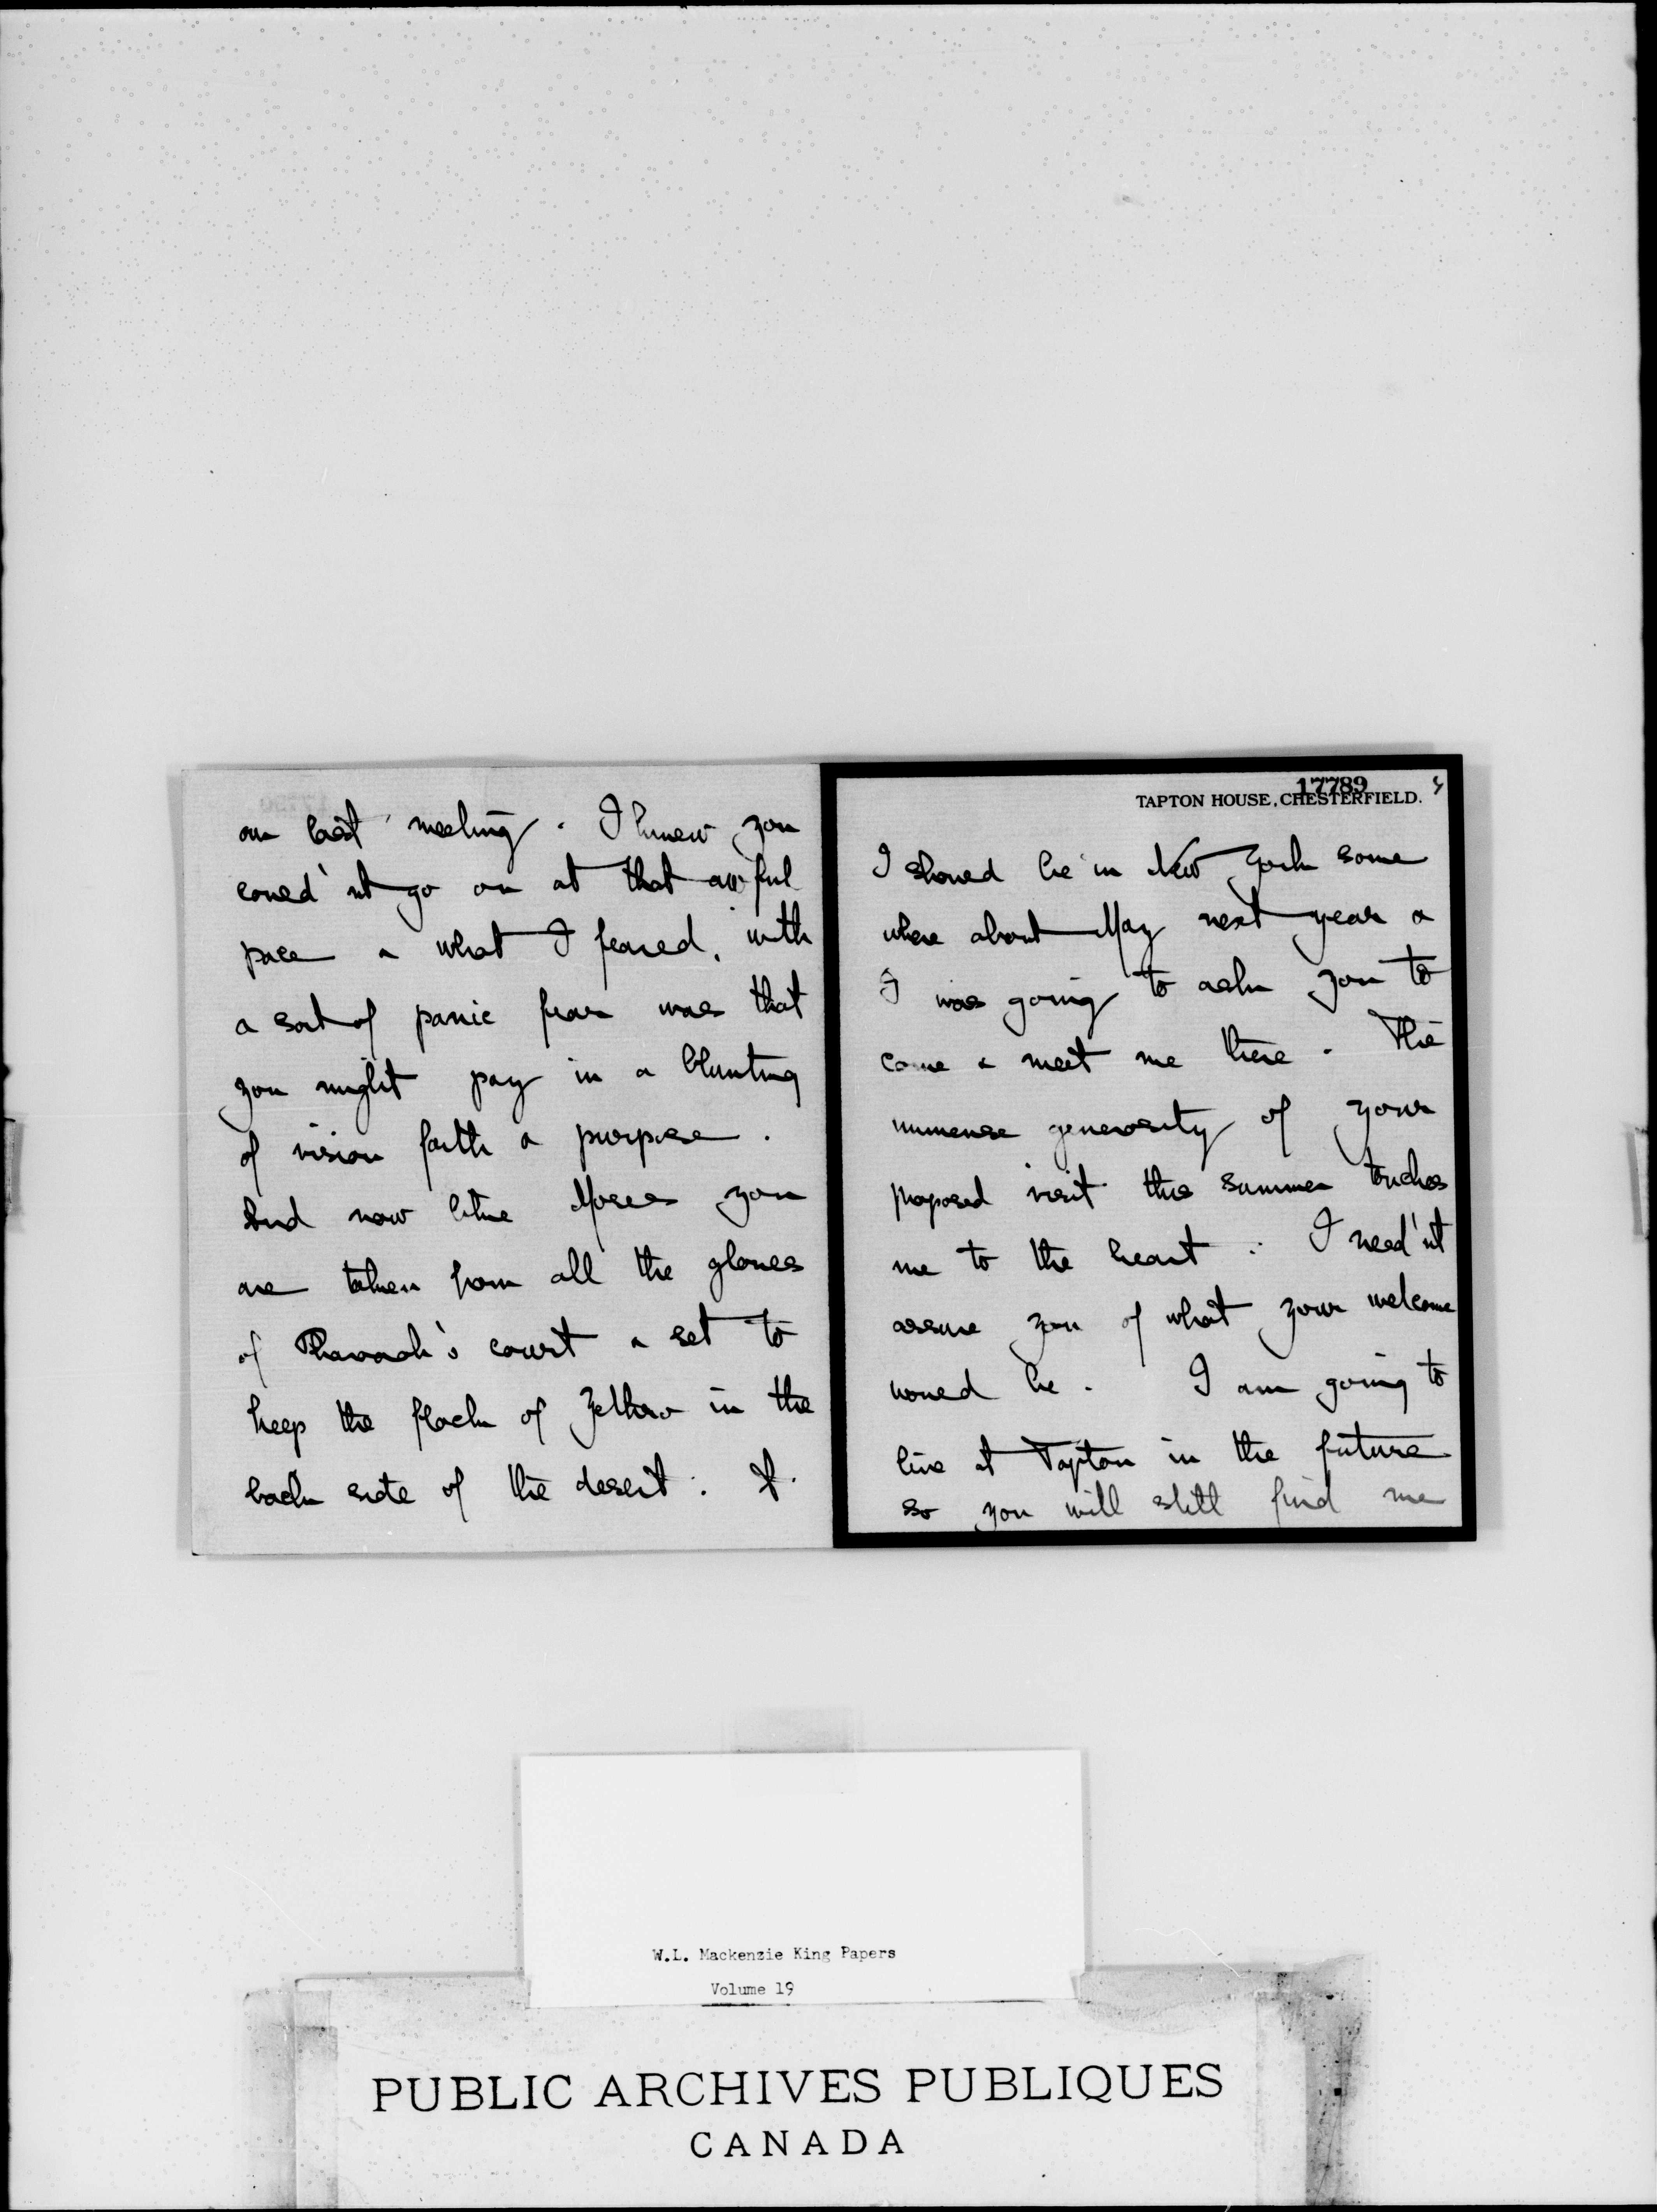 our last meeting. I knew you
could'nt go on at that awful
pace & what I feared, with
a sort of panic fear was that
you might pay in a blunting
of vision faith & purpose.
And now like Moses you
are taken from all the glories
of Pharaoh's court & set to
keep the flock of Jethro in the
back side of the desert.
17789
TAPTON HOUSE, CHESTERFIELD.
I should be in New York some
where about May next year &
I was going to ask you to
come & meet me there. The
immense generosity of your
proposed visit this summer touches
me to the heart. I need'nt
assure you of what your welcome
would be. I am going to
live at Tapton in the future
so you will still find me
W.L. Mackenzie King Papers
Volume 19
PUBLIC ARCHIVES PUBLIQUES
CANADA